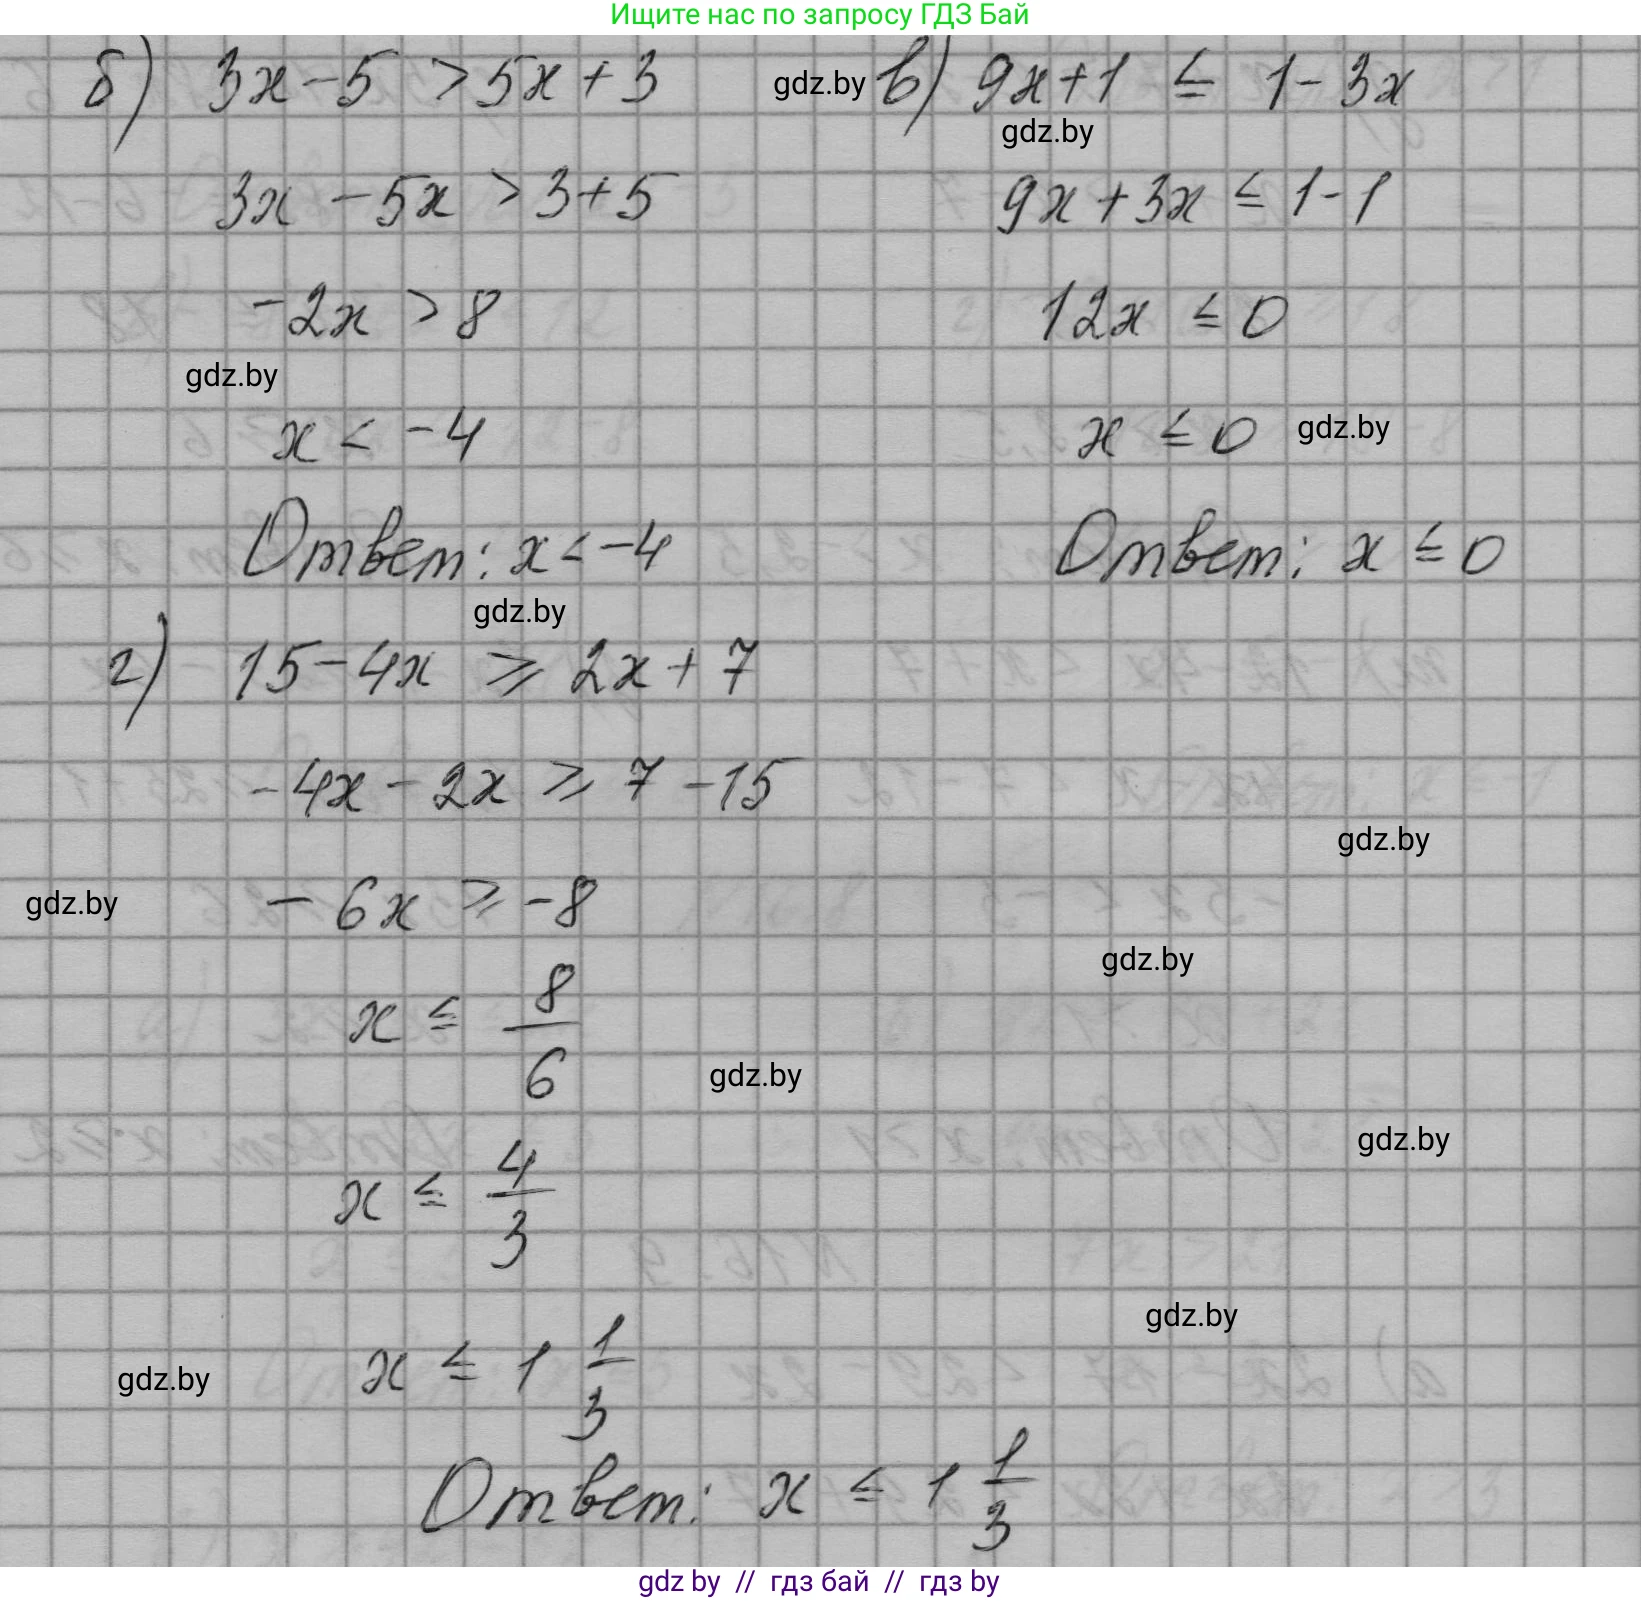 Ищите нас по запросу ГДЗ Бай
б) 3x - 5 > 5x + 3
3x - 5x > 3 + 5
-2x > 8
gdz.by
x < -4
Ответ: x < -4
gdz.by
gdz.by
в) 9x + 1 ≤ 1 - 3x
gdz.by
9x + 3x ≤ 1 - 1
12x ≤ 0
x ≤ 0
gdz.by
Ответ: x ≤ 0
г) 15 - 4x ≥ 2x + 7
-4x - 2x ≥ 7 - 15
gdz.by
gdz.by
-6x ≥ -8
gdz.by
x ≤ 8/6
gdz.by
gdz.by
x ≤ 4/3
gdz.by
gdz.by
x ≤ 1 1/3
Ответ: x ≤ 1 1/3
gdz by // гдз бай // гдз by